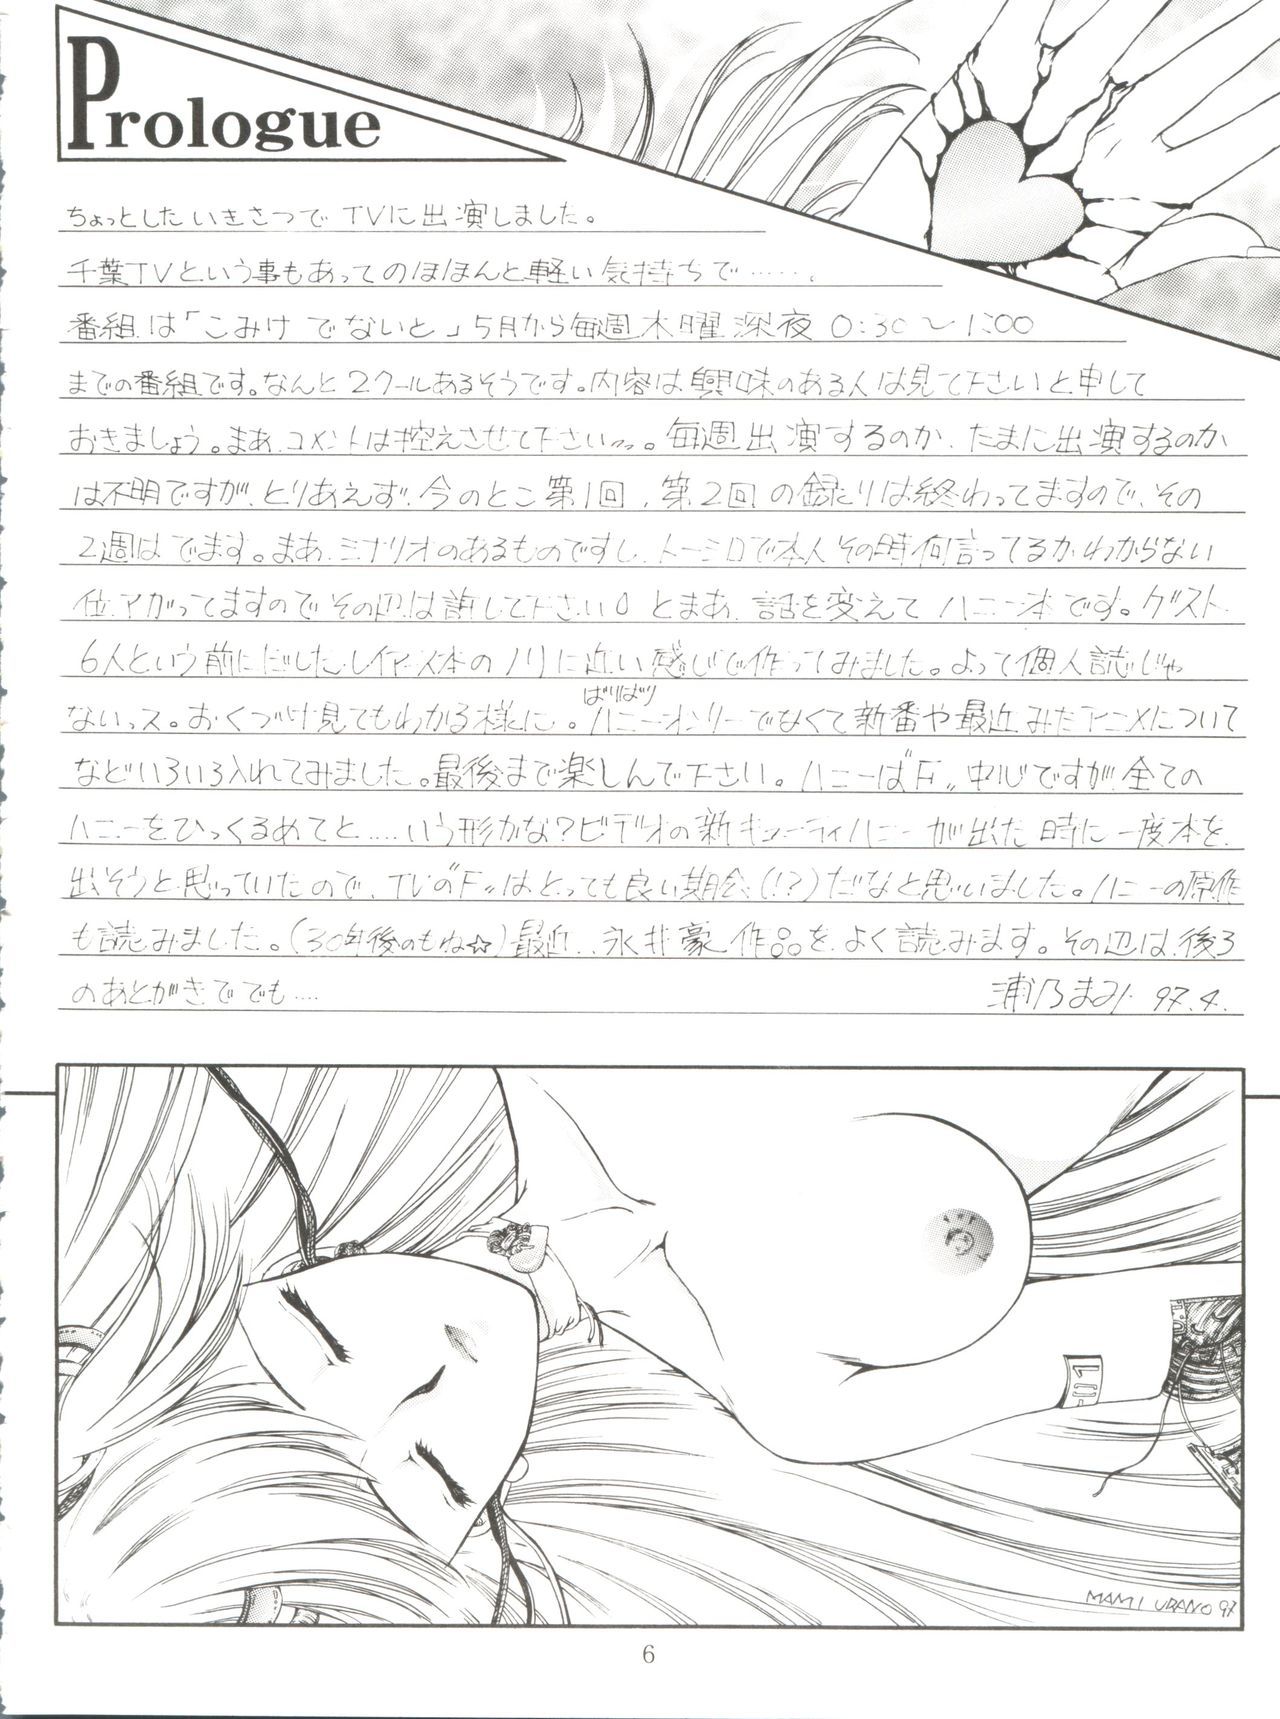 Prologue
ちょっとしたいきさつでTVに出演しました。
千葉TVという事もあってのほほんと軽い気持ちで……。
番組は「こみけでないと」5月から毎週木曜深夜0:30〜1:00
までの番組です。なんと2クールあるそうです。内容は興味のある人は見て下さいと申して
おきましょう。まあ、コメントは控えさせて下さいっっ。毎週出演するのか、たまに出演するのか
は不明ですが、とりあえず、今のとこ第1回、第2回の録とりは終わってますので、その
2週はでます。まあ、シナリオのあるものですし、トーシロで本人その時何言ってるかわからない
位、アガってますのでその辺は許して下さい。とまあ、話を変えてハニー本です。ゲスト
6人という前にだしたレイアース本のノリに近い感じで作ってみました。よって個人誌じゃ
ないっス。おくづけ見てもわかる様に。ばりばりハニーオンリーでなくて新番や最近みたアニメについて
などいろいろ入れてみました。最後まで楽しんで下さい。ハニーは"F"中心ですが、全ての
ハニーをひっくるめてと……いう形かな?ビデオの新キューティハニーが出た時に一度本を
出そうと思っていたので、TVの"F"はとっても良い期会(!?)だなと思いました。ハニーの原作
も読みました。(30年後のもね☆)最近、永井豪作品をよく読みます。その辺は、後ろ
のあとがきででも…
浦乃まみ 97.4.
-01
MAMI URANO 97
6